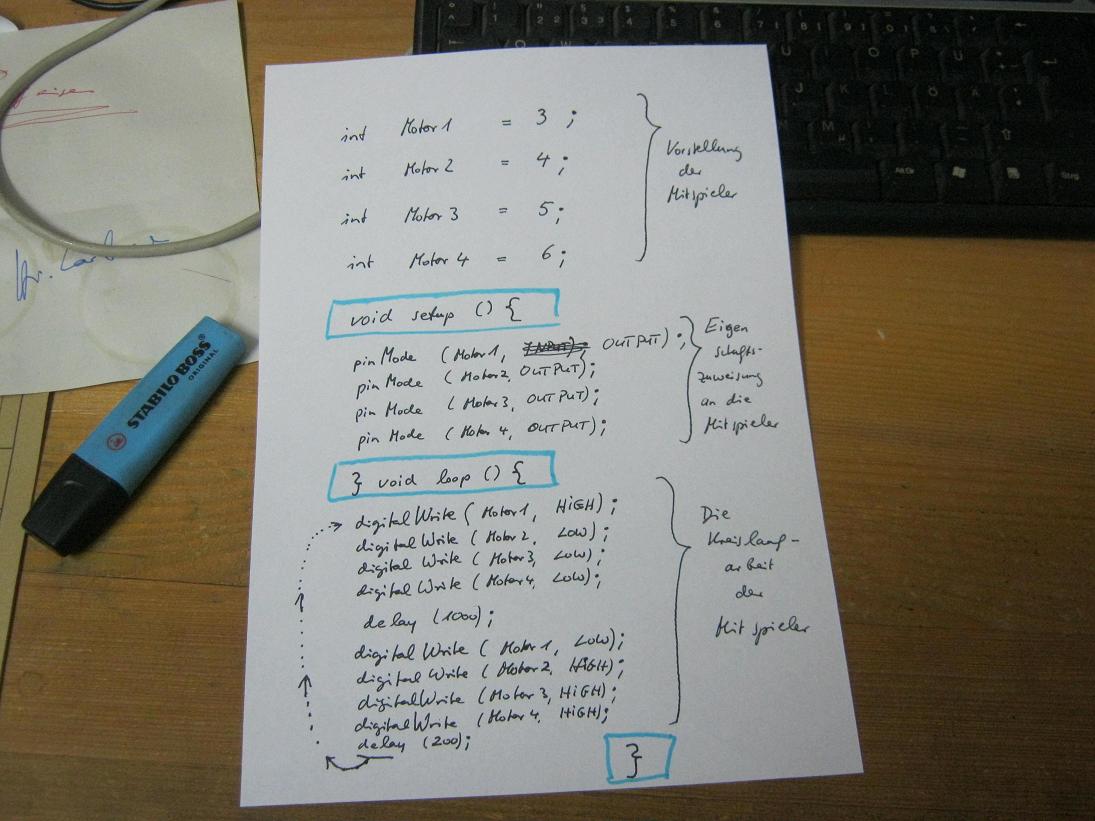 int Motor 1 = 3 ;
int Motor 2 = 4 ;
int Motor 3 = 5 ;
int Motor 4 = 6 ;
Vorstellung
der
Mitspieler
void setup () {
pinMode (Motor 1, OUTPUT) ;
pinMode (Motor 2, OUTPUT) ;
pinMode (Motor 3, OUTPUT) ;
pinMode (Motor 4, OUTPUT) ;
Eigen
schafts-
zuweisung
an die
Mitspieler
} void loop () {
digitalWrite (Motor 1, HIGH) ;
digitalWrite (Motor 2, LOW) ;
digitalWrite (Motor 3, LOW) ;
digitalWrite (Motor 4, LOW) ;
delay (1000) ;
digitalWrite (Motor 1, LOW) ;
digitalWrite (Motor 2, HIGH) ;
digitalWrite (Motor 3, HIGH) ;
digitalWrite (Motor 4, HIGH) ;
delay (200) ;
Die
Kreislauf-
arbeit
der
Mitspieler
}
STABILO BOSS
ORIGINAL